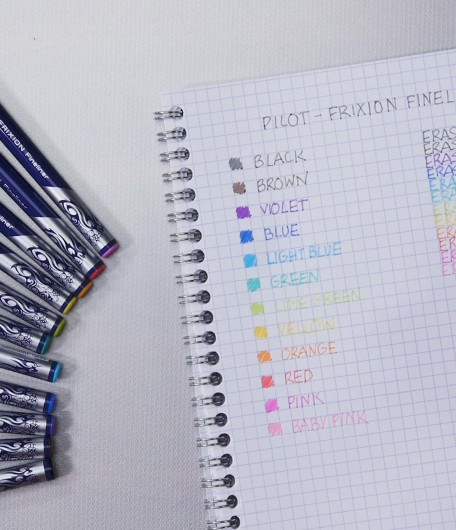 PILOT - FRIXION FINEL
BLACK
BROWN
VIOLET
BLUE
LIGHT BLUE
GREEN
LIME GREEN
YELLOW
ORANGE
RED
PINK
BABY PINK
ERAS
ERAS
ERAS
ERAS
FRIXION Fineliner
Fineliner
Fineliner